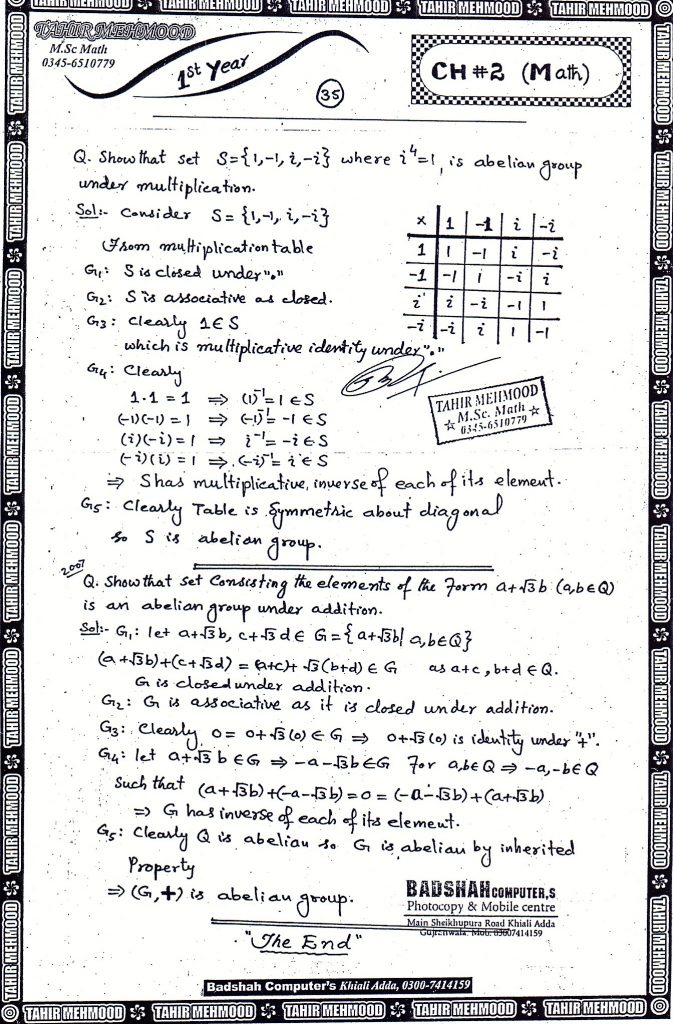 TAHIR MEHMOOD TAHIR MEHMOOD TAHIR MEHMOOD TAHIR MEHMOOD TAHIR MEHMOOD
TAHIR MEHMOOD
M.Sc Math
0345-6510779
1st Year
35
CH #2 (Math)
Q. Show that set S={1,-1,i,-i} where i⁴=1, is abelian group
under multiplication.
Sol:- Consider S={1,-1,i,-i}
From multiplication table
G₁: S is closed under "."
G₂: S is associative as closed.
G₃: Clearly 1∈S
which is multiplicative identity under "."
× | 1 | -1 | i | -i
1 | 1 | -1 | i | -i
-1 | -1 | 1 | -i | i
i | i | -i | -1 | 1
-i | -i | i | 1 | -1
G₄: Clearly
1·1 = 1 ⇒ (1)⁻¹=1∈S
(-1)(-1) = 1 ⇒ (-1)⁻¹= -1∈S
(i)(-i) = 1 ⇒ i⁻¹= -i∈S
(-i)(i) = 1 ⇒ (-i)⁻¹= i∈S
TAHIR MEHMOOD
☆ M.Sc. Math ☆
0345-6510779
⇒ S has multiplicative, inverse of each of its element.
G₅: Clearly Table is Symmetric about diagonal
so S is abelian group.
2007
Q. Show that set Consisting the elements of the Form a+√3b (a,b∈Q)
is an abelian group under addition.
Sol:- G₁: let a+√3b, c+√3d ∈ G={a+√3b| a,b∈Q}
(a+√3b)+(c+√3d) = (a+c)+√3(b+d)∈G as a+c, b+d∈Q.
G is closed under addition.
G₂: G is associative as it is closed under addition.
G₃: Clearly 0= 0+√3(0)∈G ⇒ 0+√3(0) is identity under "+".
G₄: let a+√3b∈G ⇒ -a-√3b∈G For a,b∈Q ⇒ -a,-b∈Q
Such that (a+√3b)+(-a-√3b)=0=(-a-√3b)+(a+√3b)
⇒ G has inverse of each of its element.
G₅: Clearly Q is abelian so G is abelian by inherited
Property
⇒ (G,+) is abelian group.
BADSHAH COMPUTER,S
Photocopy & Mobile centre
Main Sheikhupura Road Khiali Adda
Gujranwala. Mob: 03007414159
"The End"
Badshah Computer's Khiali Adda, 0300-7414159
TAHIR MEHMOOD TAHIR MEHMOOD TAHIR MEHMOOD TAHIR MEHMOOD TAHIR MEHMOOD